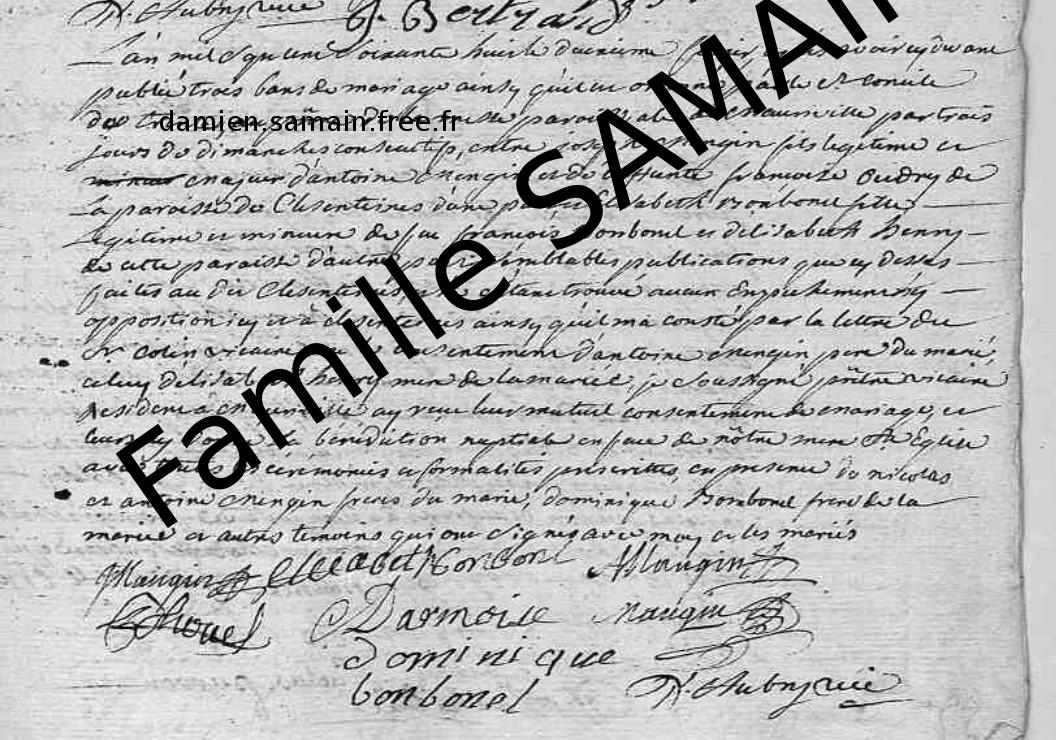 H. Aubry vice J. Bertrand
L'an mil sept cent soixante huit le deuxieme après avoir cy devant
publié trois bans de mariage ainsy qu'il est ordonné par le St concile
de damien.samain.free.fr paroissiale de par trois
jours de dimanches consecutifs, entre joseph Mengin fils legitime et
mineur majeur d'antoine Mengin et de deffunte françoise Oudry de
la paroisse de Clesenteines d'une part et Elisabeth Bonbonel fille
legitime et mineure de feu françois Bonbonel et d'elisabeth henry
de cette paroisse d'autre part semblables publications que cy dessus
faites au dit Clesenteines sans etant trouvé aucun Empechement ny
opposition icy et à clesenteines ainsy qu'il m'a consté par la lettre du
Sr Colin vicaire consentement d'antoine Mengin pere du marié,
celuy d'elisabeth henry mere de la mariée, je soussigné prêtre vicaire
Resident à ay reçu leur mutuel consentement de mariage, et
leurs ay donné la bénédiction nuptiale en face de nôtre mere Ste Eglise
avec toutes les cérémonies et formalités prescrittes, en presence de nicolas
et antoine Mengin freres du marié, dominique Bonbonel frere de la
mariée et autres temoins qui ont signés avec moy et les mariés
JMangin Elisabet Bonbonel AMangin
Darmoise Mangin
dominique
bonbonel H. Aubry vice
Famille SAMAI